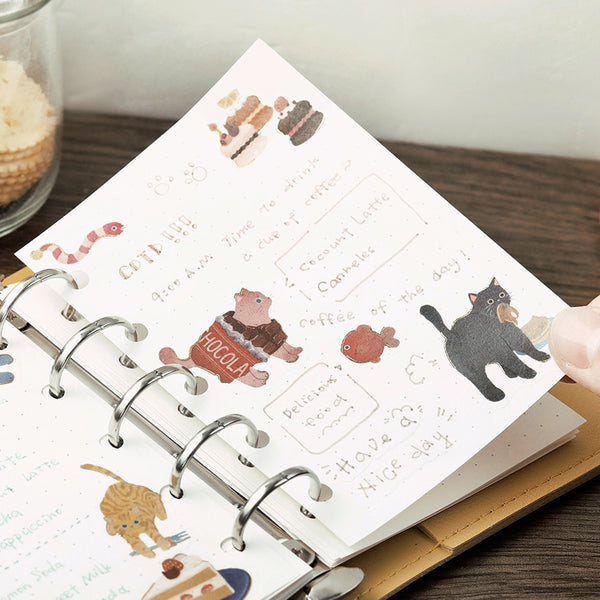 COTD !!!
9:00 A.M. Time to drink
a cup of coffee~
Cocount Latte
1 Canneles
coffee of the day!
CHOCOLA
Delicious
Good
Have a
Nice day
Latte
appuccino
Soda
eet Milk